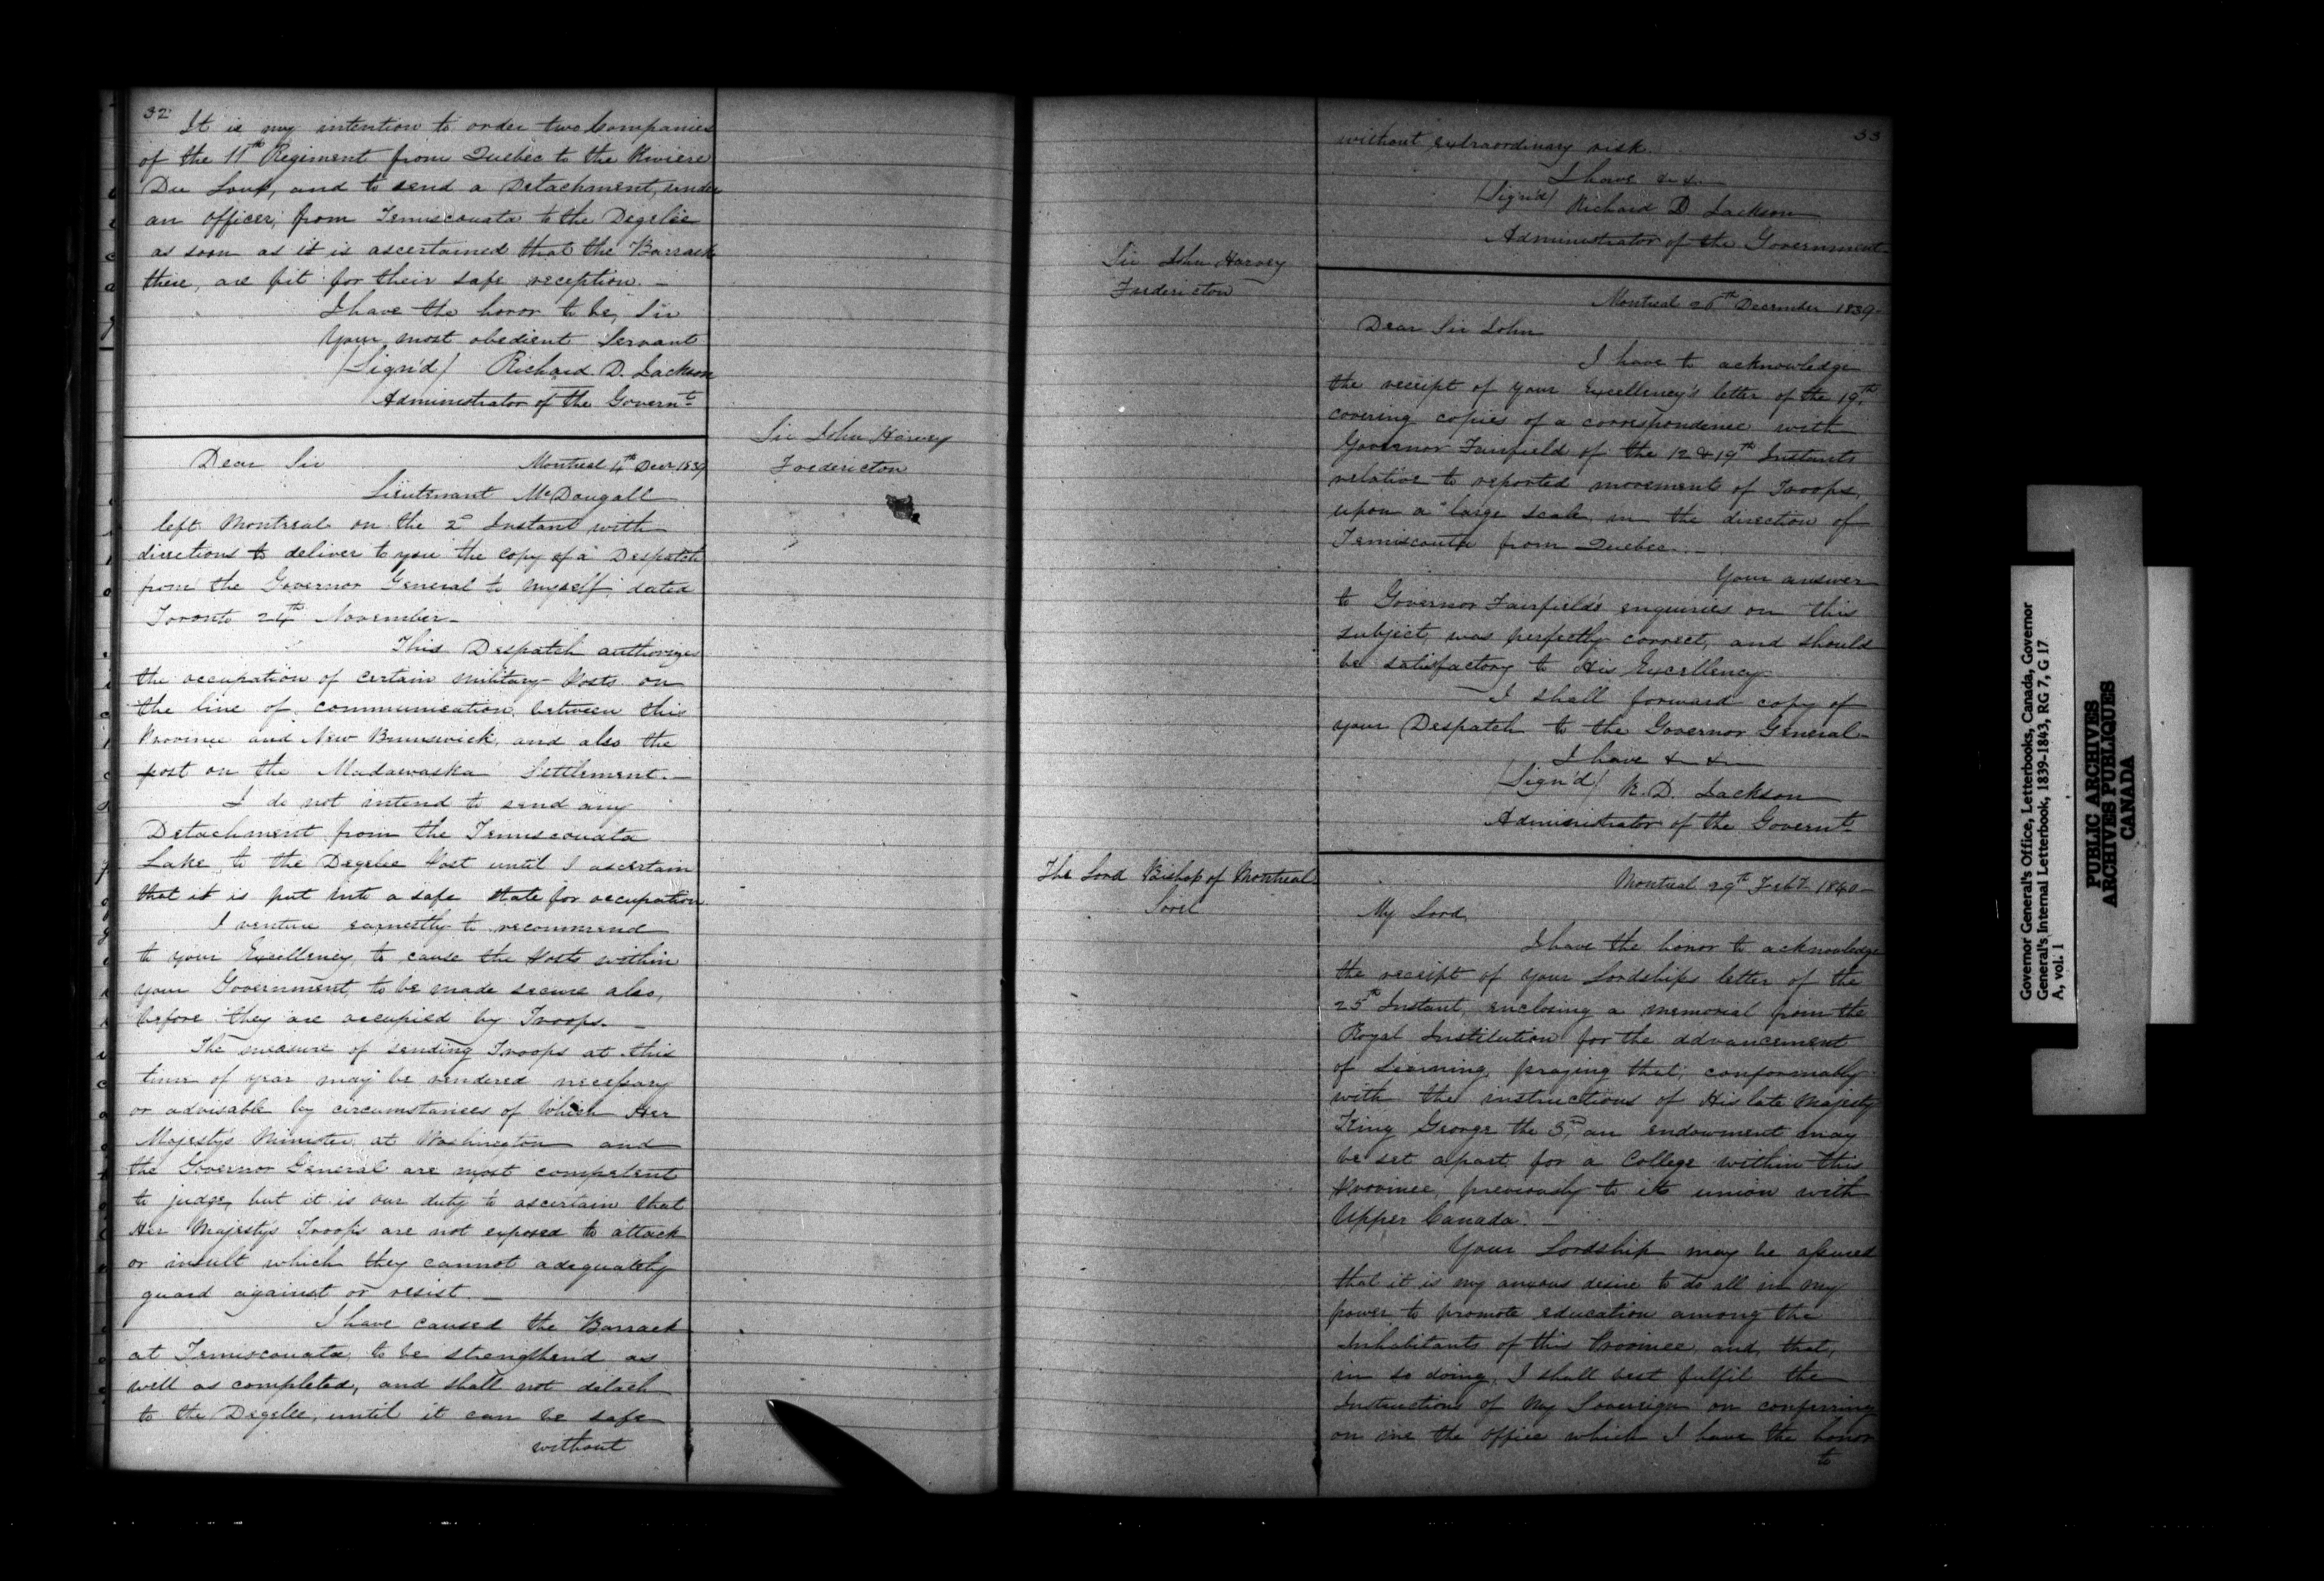 32
It is my intention to order two Companies
of the 11th Regiment from Quebec to the Riviere
Du Loup, and to send a Detachment, under
an officer, from Temiscouata to the Degelée
as soon as it is ascertained that the Barrack
there, are fit for their safe reception. —
I have the honor to be, Sir
Your most obedient Servant
(Sign'd) Richard D. Jackson
Administrator of the Governt
Sir John Harvey
Fredericton
Dear Sir Montreal 4th Decr 1839
Lieutenant McDougall
left Montreal on the 2d Instant with
directions to deliver to you the copy of a Despatch
from the Governor General to myself, dated
Toronto 24th November—
This Despatch authorizes
the occupation of certain military Posts on
the line of communication between this
Province and New Brunswick, and also the
post on the Madawaska Settlement.—
I do not intend to send any
Detachment from the Temiscouata
Lake to the Degelée Post until I ascertain
that it is put into a safe state for occupation
I venture earnestly to recommend
to your Excellency to cause the Posts within
your Government, to be made secure also,
before they are occupied by Troops. —
The measure of sending Troops at this
time of year may be rendered necessary
or advisable by circumstances of which Her
Majesty's Minister at Washington and
the Governor General are most competent
to judge, but it is our duty to ascertain that
Her Majesty's Troops are not exposed to attack
or insult which they cannot adequately
guard against or resist. —
I have caused the Barrack
at Temiscouata, to be strengthend as
well as completed, and shall not detach
to the Degelée, until it can be safe
without
33
without extraordinary risk.
I have &c &c
(Sign'd) Richard D Jackson
Administrator of the Government—
Sir John Harvey
Fredericton
Montreal 26th December 1839—
Dear Sir John
I have to acknowledge
the receipt of your Excellency's letter of the 19th
covering copies of a correspondence with
Governor Fairfield of the 12 & 19th Instants
relative to reported movements of Troops,
upon a large scale in the direction of
Temiscouta from Quebec. —
Your answer
to Governor Fairfield's enquiries on this
subject, was perfectly correct, and should
be satisfactory to His Excellency—
I shall forward copy of
your Despatch to the Governor General—
I have &c &c
(Sign'd) R. D. Jackson
Administrator of the Governt
The Lord Bishop of Montreal
Sorel
Montreal 29th Feby 1840—
My Lord,
I have the honor to acknowledge
the receipt of your Lordships letter of the
25th Instant, enclosing a memorial from the
Royal Institution for the advancement
of Learning, praying that, conformably
with the instructions of His late Majesty
King George the 3rd, an endowment may
be set apart for a College within this
Province, previously to its union with
Upper Canada. —
Your Lordship may be assured
that it is my anxious desire to do all in my
power to promote education among the
Inhabitants of this Province, and, that,
in so doing, I shall best fulfil the
Instructions of My Sovereign on conferring
on me the office which I have the honor
to
Governor General's Office, Letterbooks, Canada, Governor
General's Internal Letterbook, 1839-1843, RG 7, G 17
A, vol. 1
PUBLIC ARCHIVES
ARCHIVES PUBLIQUES
CANADA